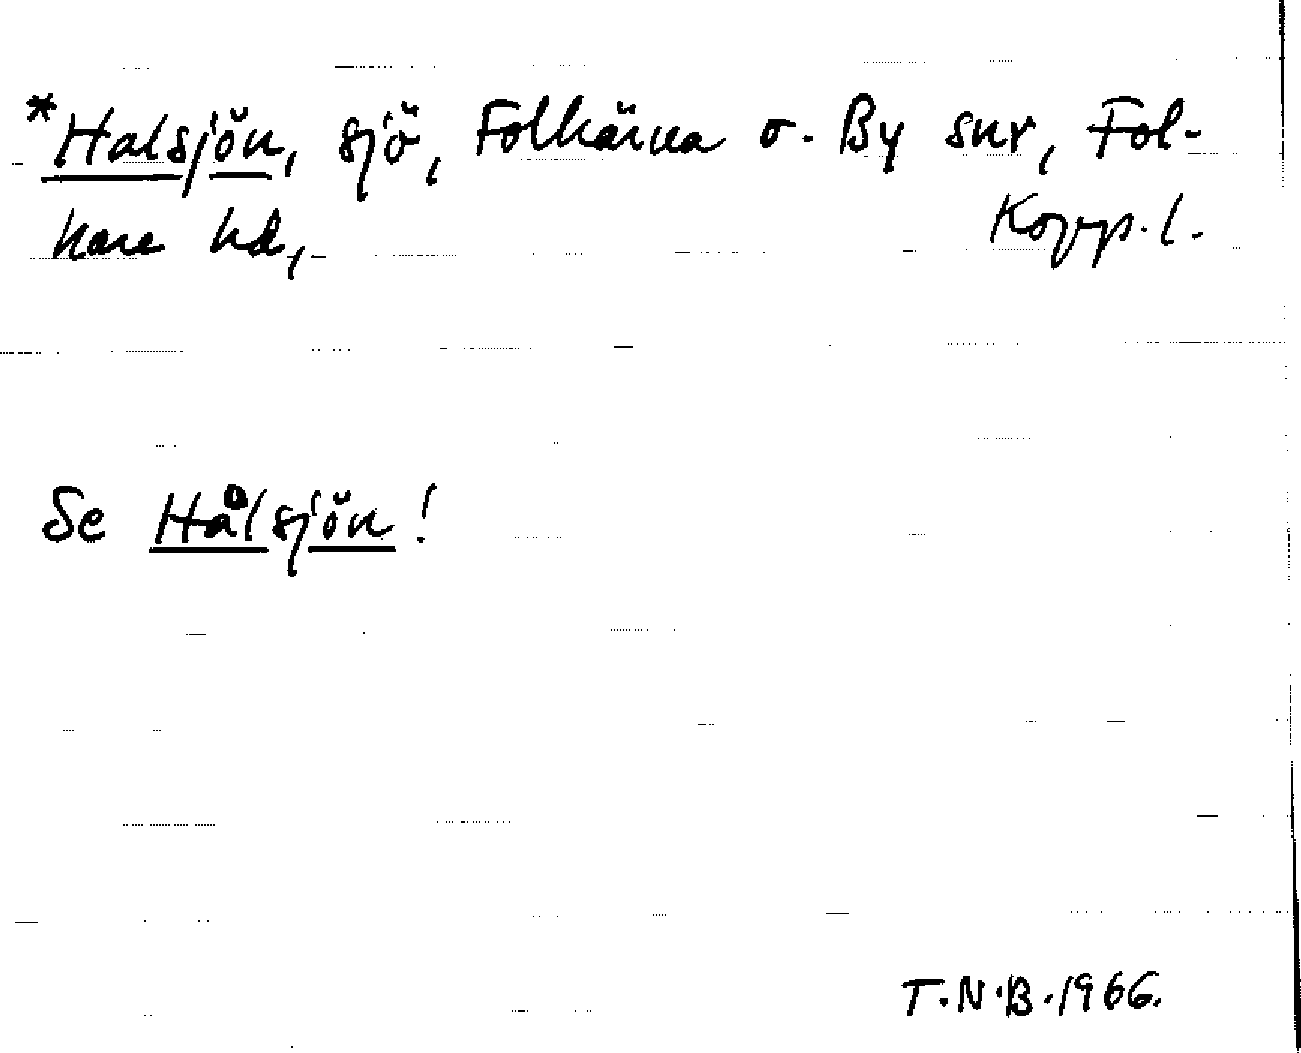 *Halsjön, sjö, Folkärna o. By snr, Fol-
kare hd, Kopp. l.
Se Hålsjön!
T.N.B. 1966.